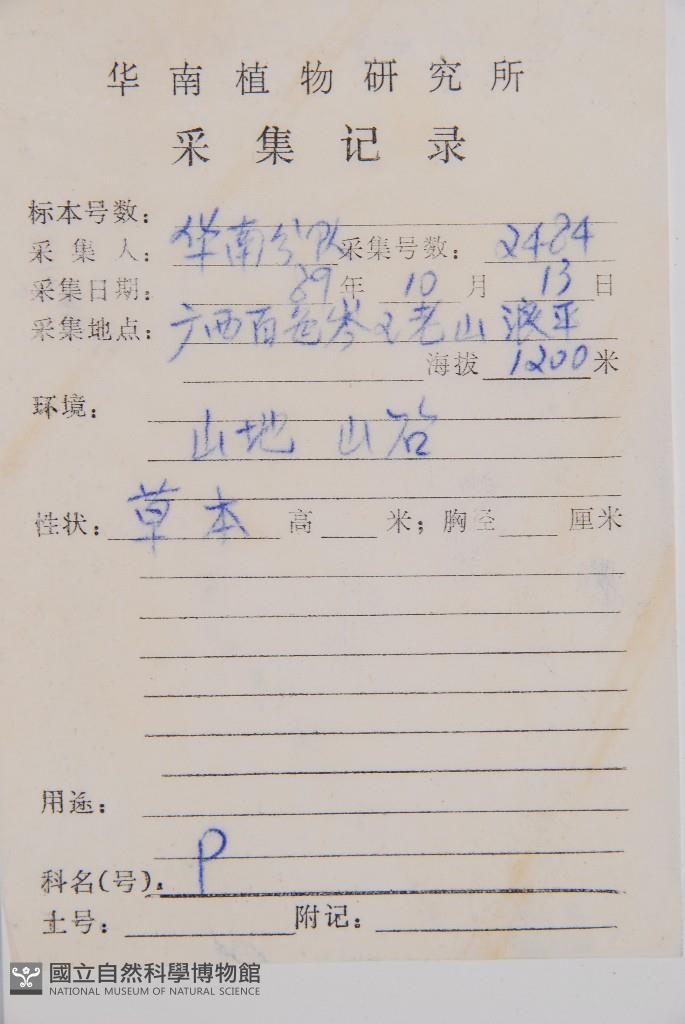 华南植物研究所
采集记录
标本号数：
采集人：华南分队 采集号数：2484
采集日期：89年10月13日
采集地点：广西百色岑王老山浪平
海拔1200米
环境：
山地 山谷
性状：草本 高 米；胸径 厘米
用途：
科名(号)：P
土号： 附记：
國立自然科學博物館
NATIONAL MUSEUM OF NATURAL SCIENCE